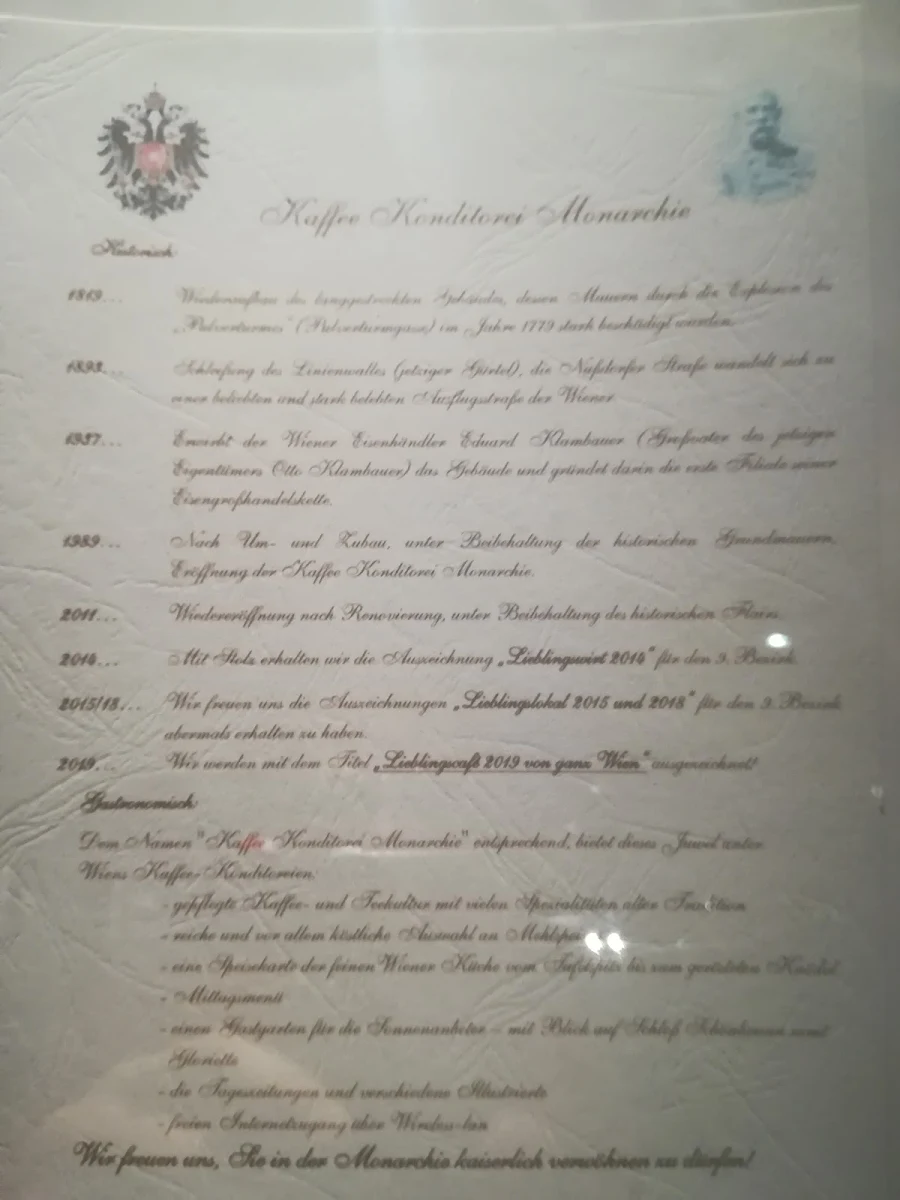 Kaffee Konditorei Monarchie
Historisch:
1819... Wiederaufbau des langgestreckten Gebäudes, dessen Mauern durch die Explosion des
„Pulverturmes“ (Pulverturmgasse) im Jahre 1779 stark beschädigt wurden.
1893... Schleifung des Linienwalles (jetziger Gürtel), die Nußdorfer Straße wandelt sich zu
einer beliebten und stark belebten Ausflugsstraße der Wiener.
1937... Erwirbt der Wiener Eisenhändler Eduard Klambauer (Großvater des jetzigen
Eigentümers Otto Klambauer) das Gebäude und gründet darin die erste Filiale seiner
Eisengroßhandelskette.
1989... Nach Um- und Zubau, unter Beibehaltung der historischen Grundmauern,
Eröffnung der Kaffee Konditorei Monarchie.
2011... Wiedereröffnung nach Renovierung, unter Beibehaltung des historischen Flairs.
2014... Mit Stolz erhalten wir die Auszeichnung „Lieblingswirt 2014“ für den 9. Bezirk.
2015/18... Wir freuen uns die Auszeichnungen „Lieblingslokal 2015 und 2018“ für den 9. Bezirk
abermals erhalten zu haben.
2019... Wir werden mit dem Titel „Lieblingscafé 2019 von ganz Wien“ ausgezeichnet!
Gastronomisch:
Dem Namen "Kaffee Konditorei Monarchie" entsprechend, bietet dieses Juwel unter
Wiens Kaffee-Konditoreien:
- gepflegte Kaffee- und Teekultur mit vielen Spezialitäten alter Tradition
- reiche und vor allem köstliche Auswahl an
- eine Speisekarte der feinen Wiener Küche vom Tafelspitz bis zum gerösteten Knödel
- Mittagsmenü
- einen Gastgarten für die Sonnenanbeter – mit Blick auf Schloß Schönbrunn samt
Gloriette
- die Tageszeitungen und verschiedene Illustrierte
- freien Internetzugang über Wireless-lan
Wir freuen uns, Sie in der Monarchie kaiserlich verwöhnen zu dürfen!